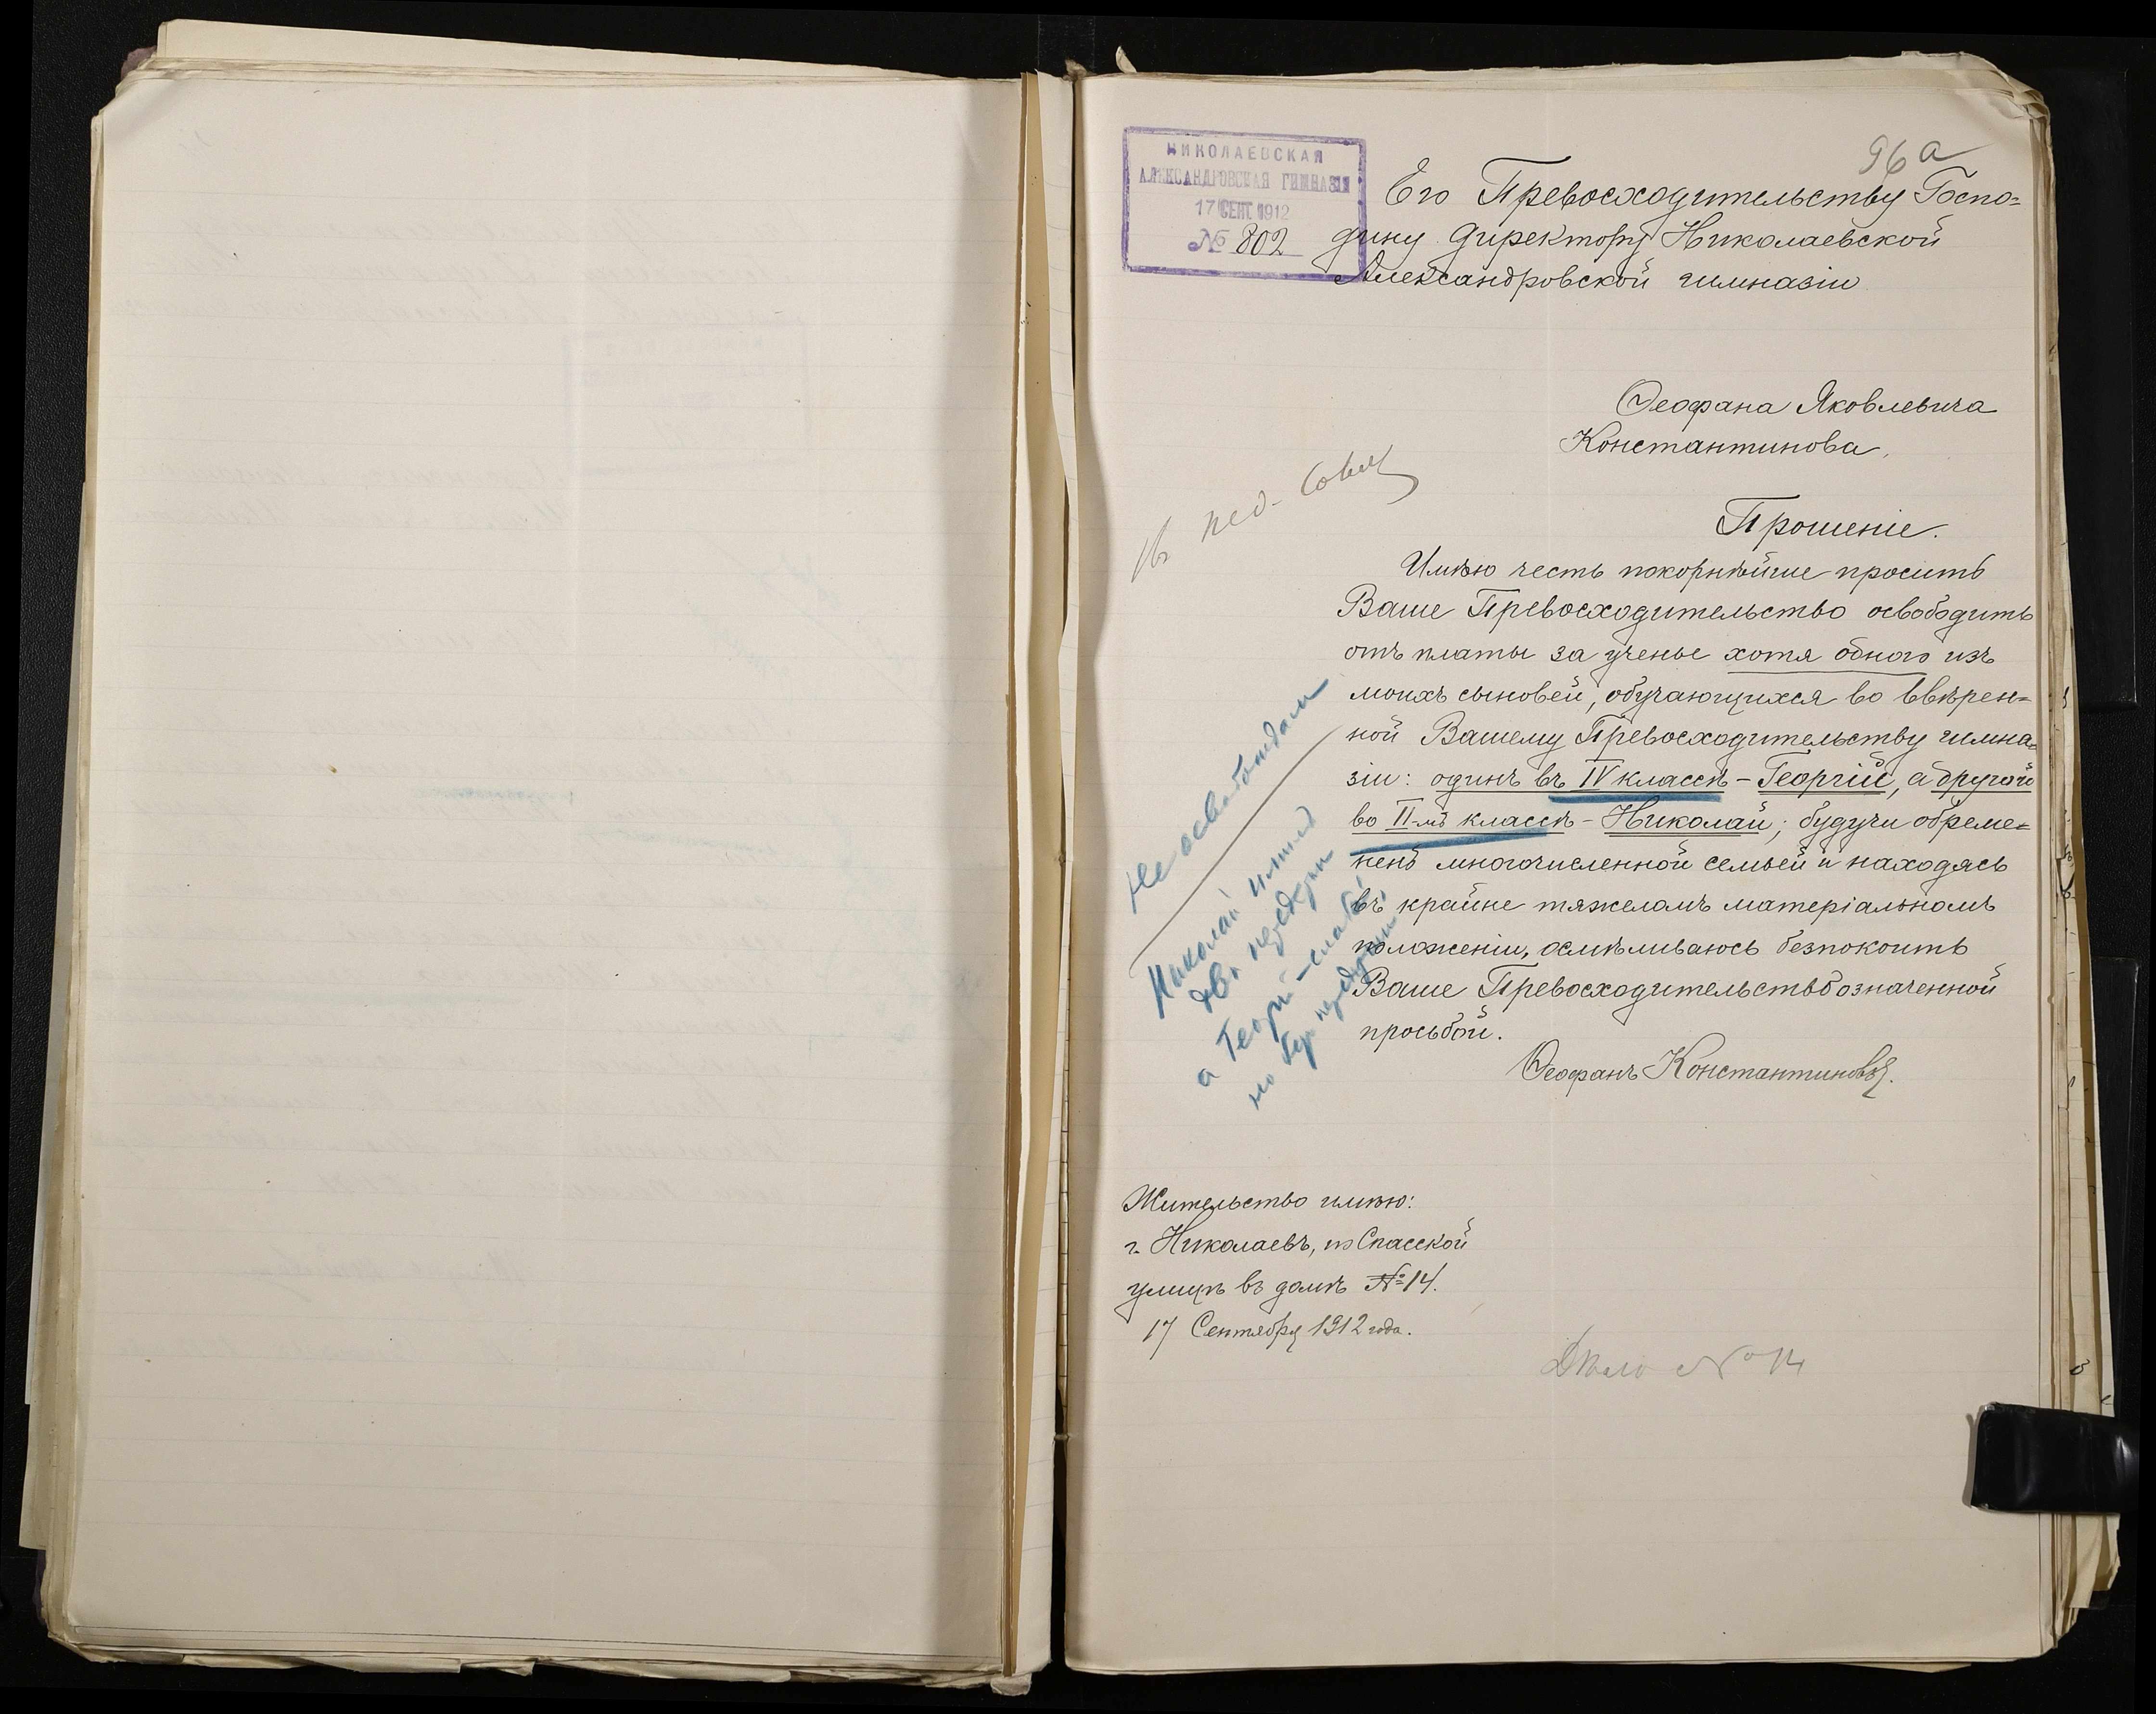 96 а
НИКОЛАЕВСКАЯ
АЛЕКСАНДРОВСКАЯ ГИМНАЗІЯ
17 СЕНТ. 1912
№ 802
Его Превосходительству Госпо=
дину Директору Николаевской
Александровской гимназіи
Ѳеофана Яковлевича
Константинова.
Въ пед. Совет
Прошеніе.
Имѣю честь покорнѣйше просить
Ваше Превосходительство освободить
отъ платы за ученье хотя одного изъ
моихъ сыновей, обучающихся во ввѣрен=
ной Вашему Превосходительству гимна=
зіи: одинъ въ IV классѣ – Георгій, а другой
во II-мъ классѣ – Николай; будучи обреме=
ненъ многочисленной семьей и находясь
въ крайне тяжеломъ матеріальномъ
положеніи, осмѣливаюсь безпокоить
Ваше Превосходительство означенной
просьбой.
Ѳеофанъ Константиновъ.
Не освобождать
Николай имѣет
дв.
а Георгій – слабъ,
но без
Жительство имѣю:
г. Николаевъ, по Спасской
улицѣ въ домѣ № 14.
17 Сентября 1912 года.
Дѣло № 14